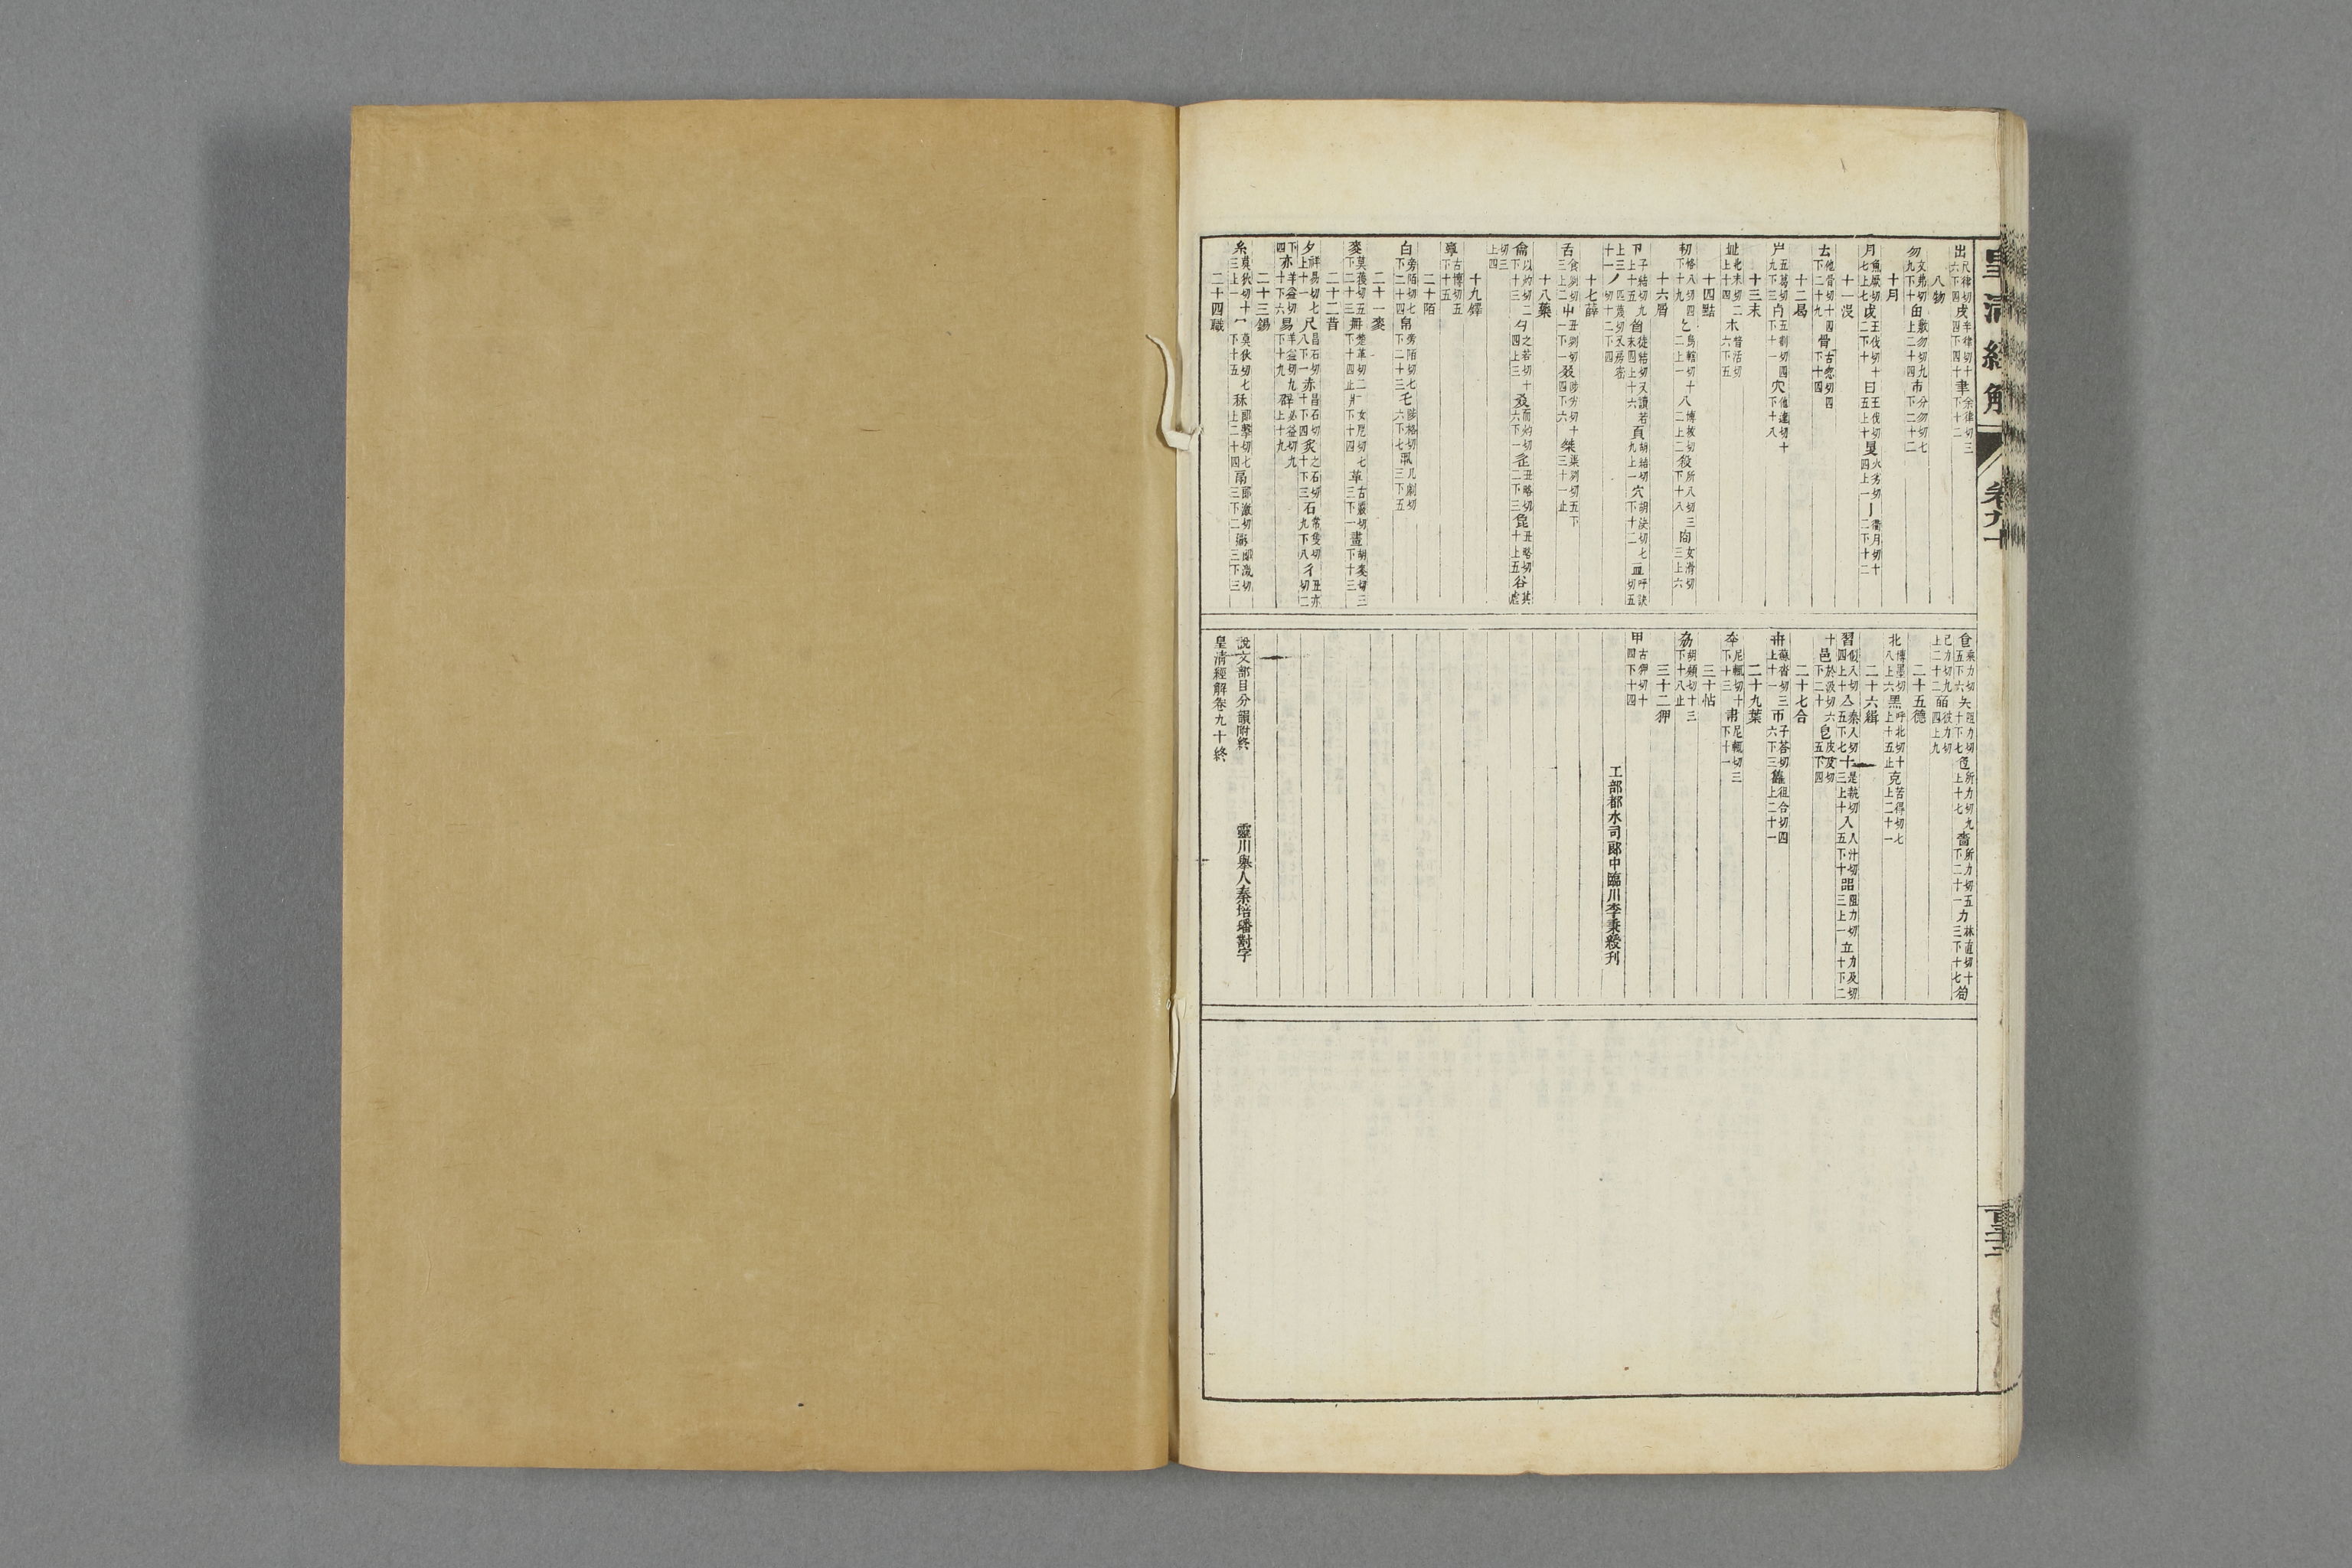 皇清經解 卷九十
出尺律切六下四戌辛律切十四下四十聿余律切三下十二
八物
勿文弗切九下十甶敷勿切九上二十四巿分勿切七下二十二
十月
月魚厥切七上七戉王伐切十二下十曰王伐切五上十𥄎火劣切四上一亅衢月切十二下十二
十一沒
𠫓他骨切十四下二十九骨古忽切四下十四
十二曷
屵五葛切九下三歺五割切四下十一
十三末
癶北末切二上十四𣎵普活切六下五
十四黠
㓞恪八切四下十九乙烏轄切十二上一八博拔切二上二殺所八切三下十八㕯女滑切三上六
十六屑
卪子結切九上十五𥄕徒結切又讀若末四上十六頁胡結切九上一穴胡決切七下十二𥄎呼決切五
上三丿匹蔑切又房密切十二下四十一
十七薛
舌食列切三上二屮丑列切一下一叕陟劣切十四下六桀渠列切五下三十一止
十八藥
龠以灼切二下十三勺之若切十四上三叒而灼切六下一辵丑略切二下三㲋丑略切十上五谷其虐
切三上四
十九鐸
𩫏古博切五下十五
二十陌
白旁陌切七下二十四帛旁陌切七下二十三乇陟格切六下七丮几劇切三下五
二十一麥
麥莫獲切五下二十三冊楚革切二下十四止疒女戹切七下十四革古覈切三下一畫胡麥切三下十三
二十二昔
夕祥易切七上十一尺昌石切八下一赤昌石切十下四炙之石切十下三石常隻切九下八彳丑亦切二
下四亦羊益切十下六易羊益切九下十九辟必益切九上十九
二十三錫
糸莫狄切十三上一冖莫狄切七下十五秝郎擊切七上二十四鬲郎激切三下二䰜郎激切三下三
二十四職
食乘力切五下六矢阻力切十下七色所力切九上十七嗇所力切五下二十一力林直切十三下十七茍
己力切九上二十二皕彼力切四上九
二十五德
北博墨切八上六黑呼北切十上十五止克苦得切七上二十一
二十六緝
習似入切四上十亼秦入切五下七十是執切三上十入人汁切五下十㗊阻力切三上一立力及切十下二
十邑於汲切六下二十皀皮及切五下四
二十七合
卅蘇沓切三上十一帀子荅切六下三雥徂合切四上二十一
二十九葉
㚔尼輒切十下十三𦘒尼輒切三下十一
三十帖
劦胡頰切十三下十八止
三十二狎
甲古狎切十四下十四
工部都水司郎中臨川李秉綬刊
說文部目分韻附終 靈川舉人秦培璠對字
皇清經解卷九十終